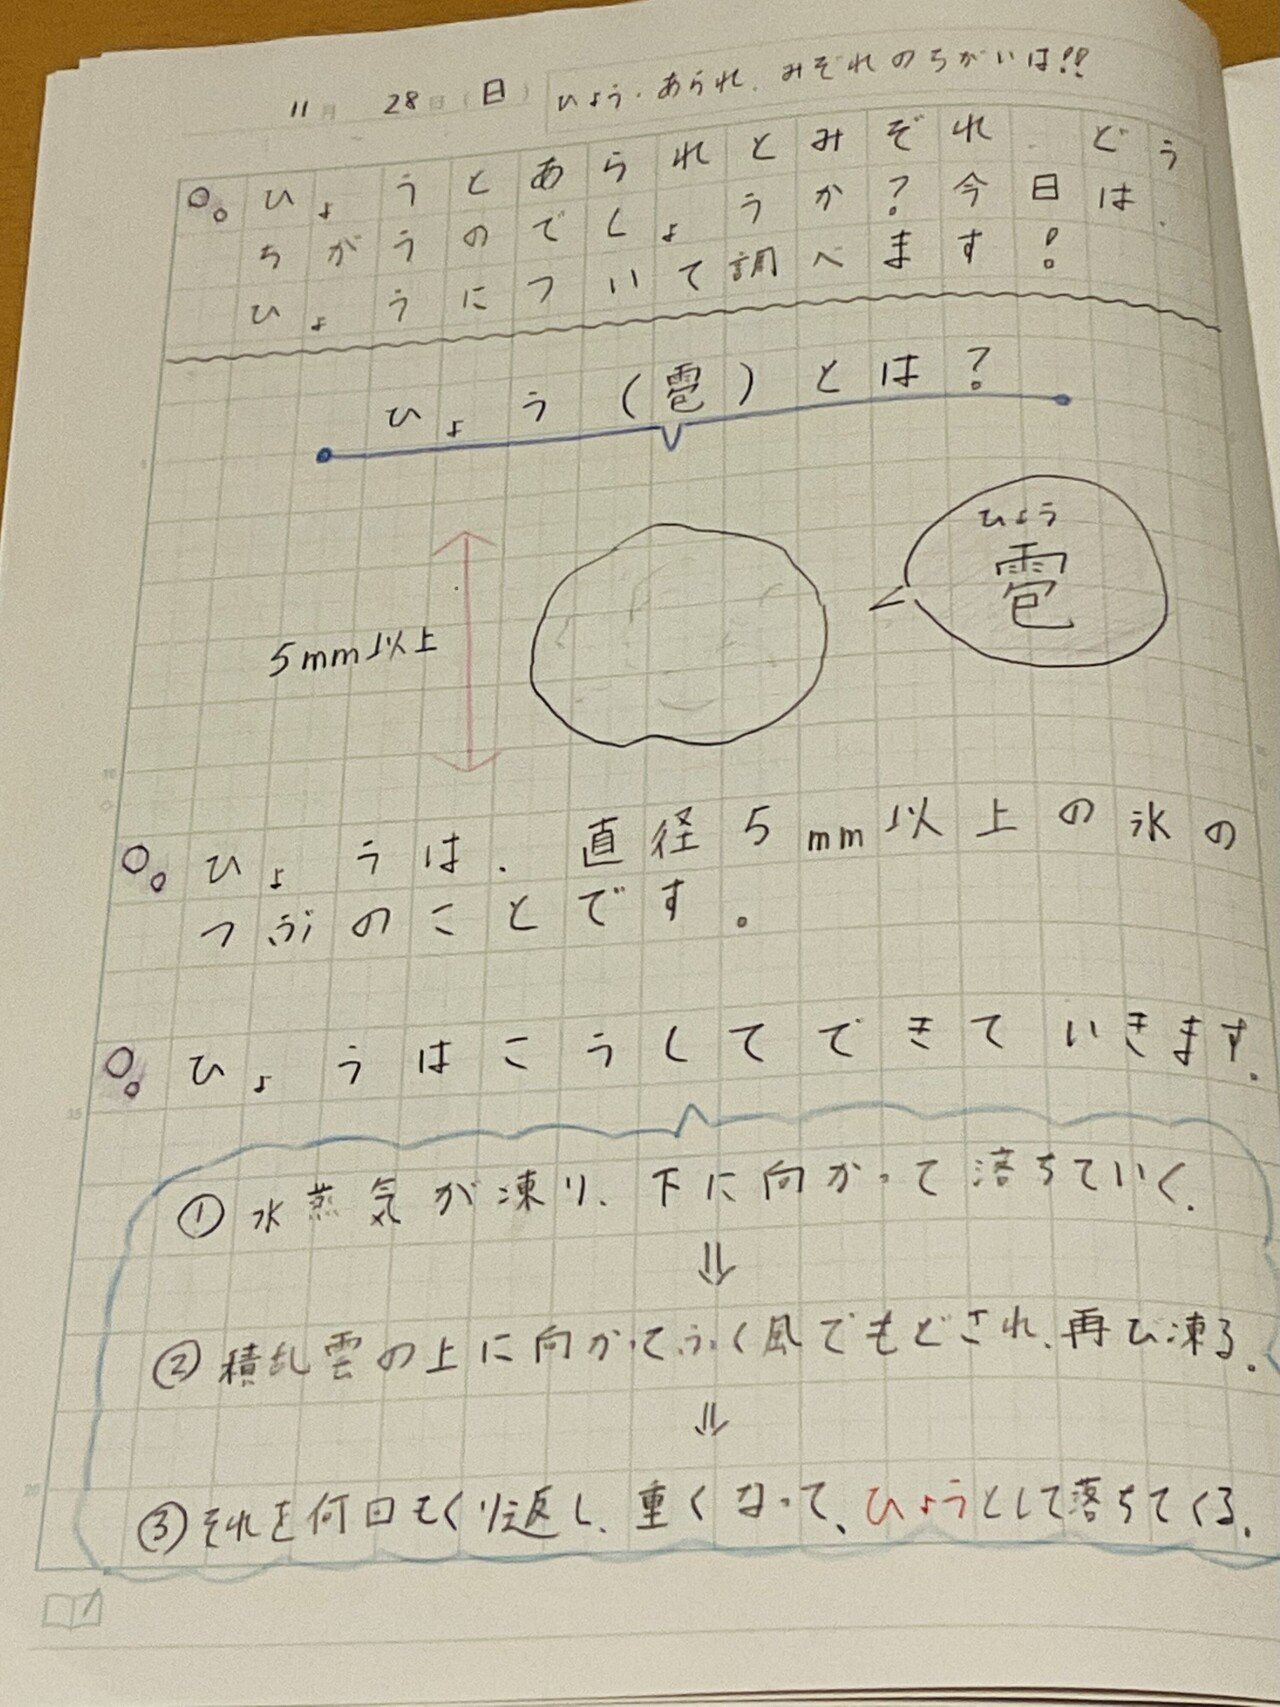 11月 28日(日) ひょう.あられ.みぞれのちがいは!!
ひょうとあられとみぞれ.どう
ちがうのでしょうか?今日は.
ひょうについて調べます!
ひょう(雹)とは?
ひょう
雹
5mm以上
ひょうは.直径5mm以上の氷の
つぶのことです。
ひょうはこうしてできていきます.
①水蒸気が凍り、下に向かって落ちていく.
⇓
②積乱雲の上に向かってふく風でもどされ、再び凍る.
⇓
③それを何回もくり返し、重くなって、ひょうとして落ちてくる.